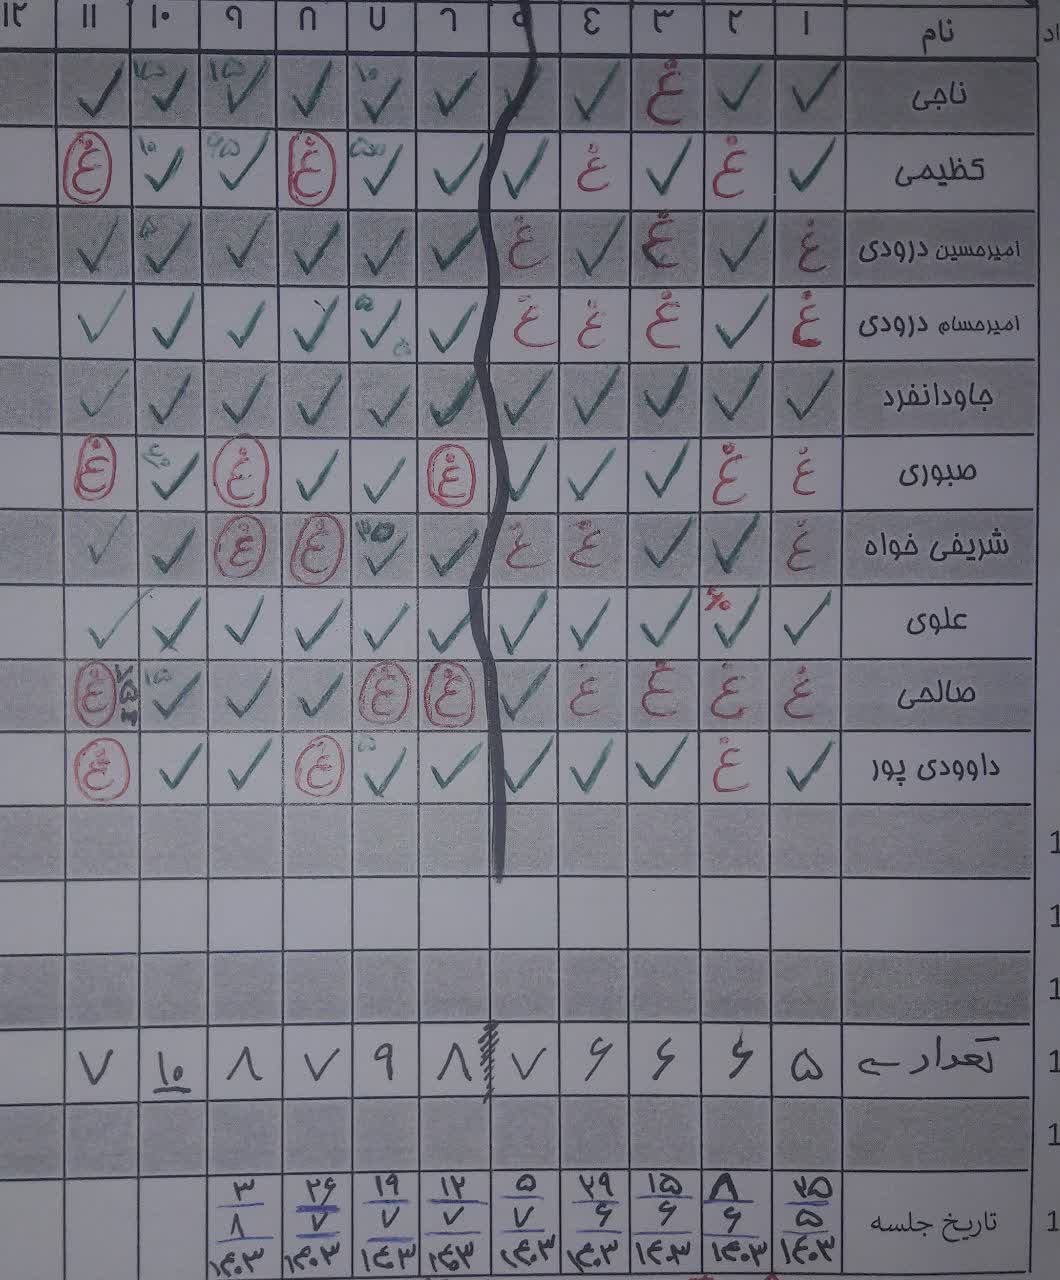 نام ۱ ۲ ۳ ۴ ۵ ۶ ۷ ۸ ۹ ۱۰ ۱۱ ۱۲
ناجی ✓ ✓ غ ✓ ✓ ✓ ✓ ۱۰ ✓ ✓ ۱۵ ✓ ✓
کظیمی ✓ غ ✓ غ ✓ ✓ ✓ غ ✓ ✓ ۱۰ غ
امیرحسین درودی غ ✓ غ ✓ غ ✓ ✓ ✓ ✓ ✓ ۵ ✓
امیرحسام درودی غ ✓ غ غ غ ✓ ✓ ۵ ✓ ✓ ✓ ✓
جاودانفرد ✓ ✓ ✓ ✓ ✓ ✓ ✓ ✓ ✓ ✓ ✓
صبوری غ غ ✓ ✓ ✓ غ ✓ ✓ غ ✓ غ
شریفی خواه غ ✓ ✓ غ غ ✓ ✓ غ غ ✓ ✓
علوی ✓ ✓ ✓ ✓ ✓ ✓ ✓ ✓ ✓ ✓ ✓
صالحی غ غ غ غ ✓ غ غ ✓ ✓ ✓ ۱۵ غ
داوودی پور ✓ غ ✓ ✓ ✓ ✓ ✓ ۵ غ ✓ ✓ غ
تعداد ۵ ۶ ۶ ۶ ۷ ۸ ۹ ۷ ۸ ۱۰ ۷
تاریخ جلسه ۲۵ ۸ ۱۵ ۲۹ ۵ ۱۲ ۱۹ ۲۶ ۳
۵ ۶ ۶ ۶ ۷ ۷ ۷ ۷ ۸
۱۴۰۳ ۱۴۰۳ ۱۴۰۳ ۱۴۰۳ ۱۴۰۳ ۱۴۰۳ ۱۴۰۳ ۱۴۰۳ ۱۴۰۳